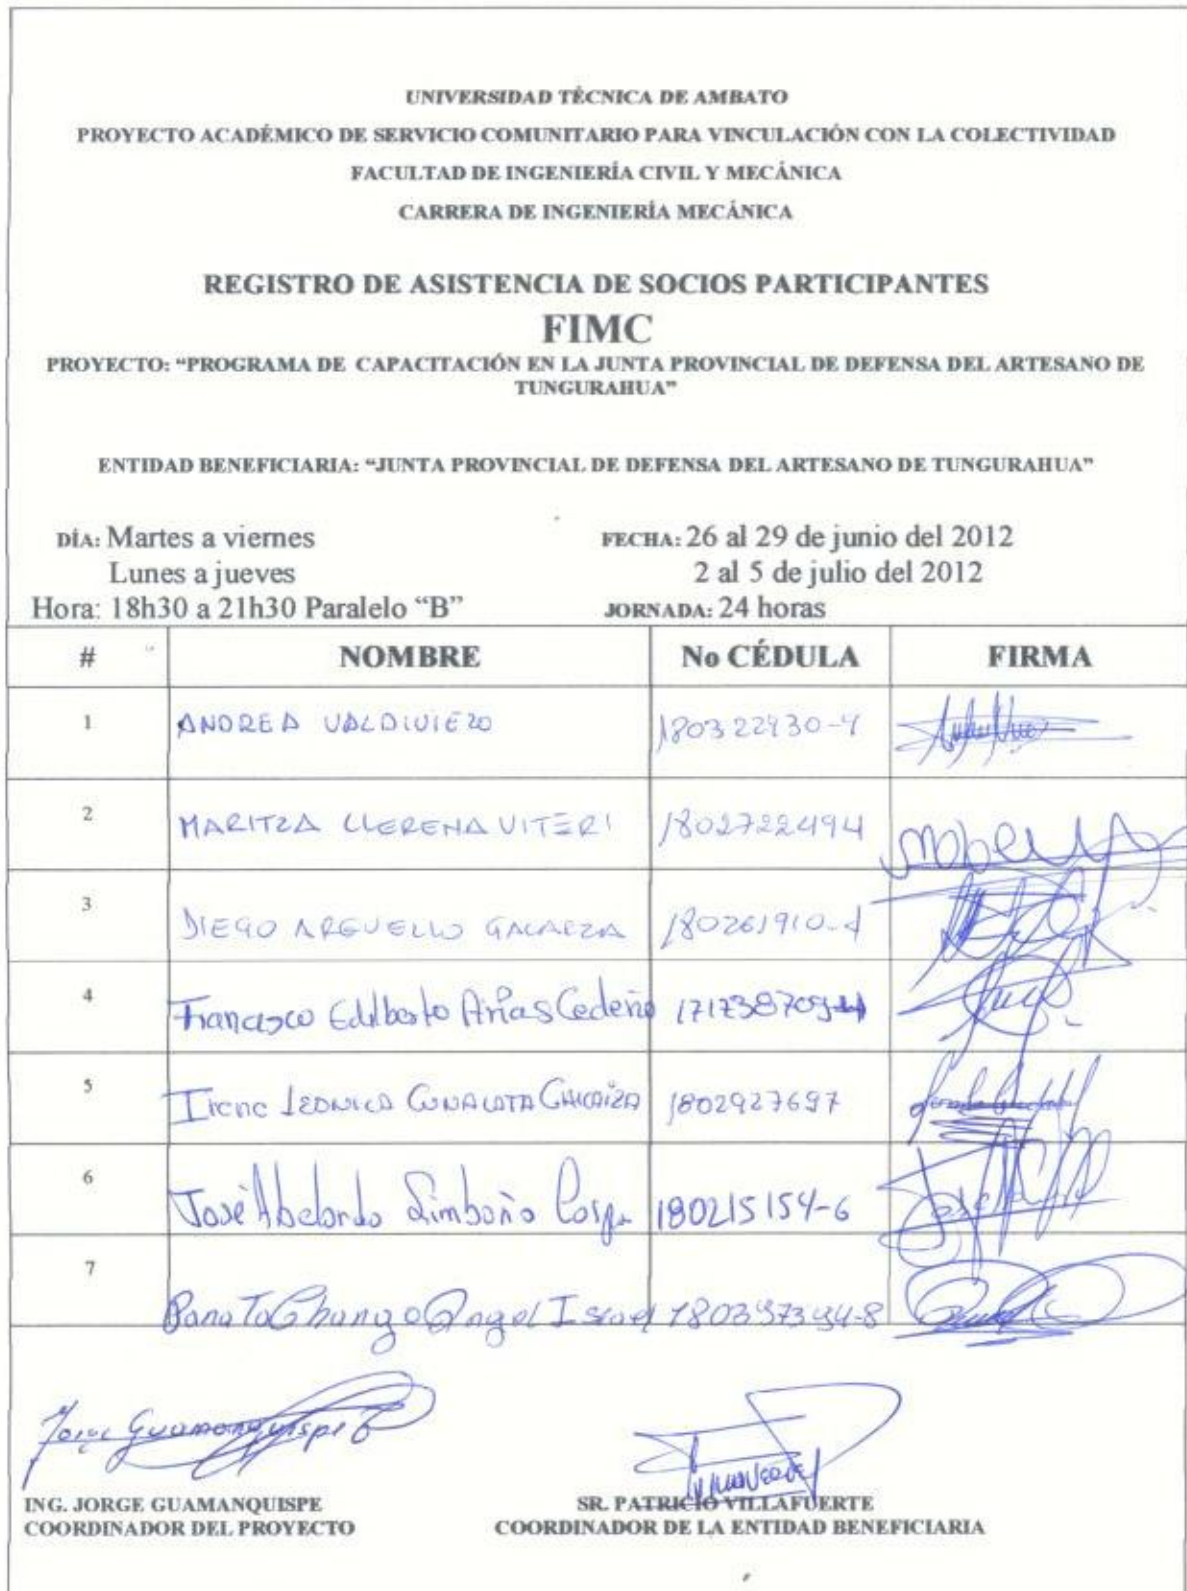 UNIVERSIDAD TÉCNICA DE AMBATO
PROYECTO ACADÉMICO DE SERVICIO COMUNITARIO PARA VINCULACIÓN CON LA COLECTIVIDAD
FACULTAD DE INGENIERÍA CIVIL Y MECÁNICA
CARRERA DE INGENIERÍA MECÁNICA
REGISTRO DE ASISTENCIA DE SOCIOS PARTICIPANTES
FIMC
PROYECTO: “PROGRAMA DE CAPACITACIÓN EN LA JUNTA PROVINCIAL DE DEFENSA DEL ARTESANO DE
TUNGURAHUA”
ENTIDAD BENEFICIARIA: “JUNTA PROVINCIAL DE DEFENSA DEL ARTESANO DE TUNGURAHUA”
DÍA: Martes a viernes FECHA: 26 al 29 de junio del 2012
Lunes a jueves 2 al 5 de julio del 2012
Hora: 18h30 a 21h30 Paralelo “B” JORNADA: 24 horas
# NOMBRE No CÉDULA FIRMA
1 ANDREA VALDIVIEZO 180322930-4
2 MARITZA LLERENA VITERI 1802722494
3 DIEGO ARGUELLO GALARZA 180261910-
4 Francisco Edilberto Arias Cedeño
5 Irene 1802927697
6 José Abelardo 180215154-6
7 Chango Angel Israel
Jorge Guamanquispe T
ING. JORGE GUAMANQUISPE SR. PATRICIO VILLAFUERTE
COORDINADOR DEL PROYECTO COORDINADOR DE LA ENTIDAD BENEFICIARIA